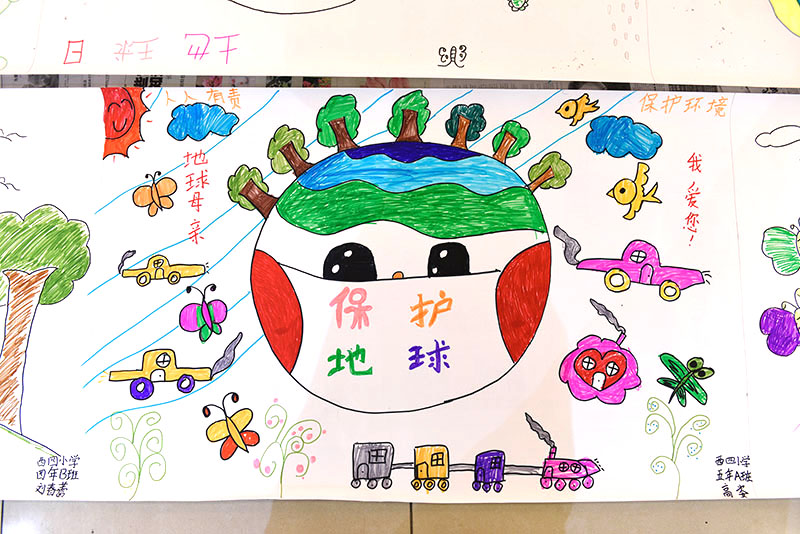 人人有责
保护环境
地球母亲
我爱您!
保护
地球
西四小学
四年B班
西四小学
五年A班